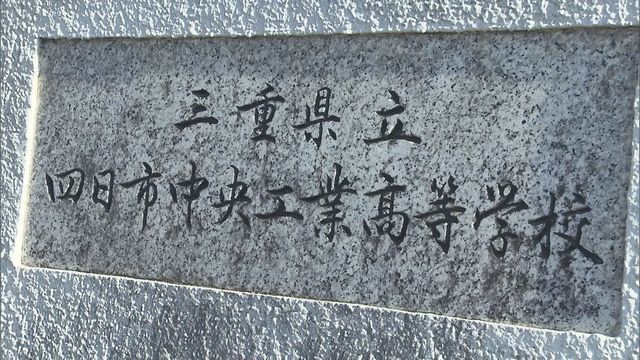 三重県立
四日市中央工業高等学校